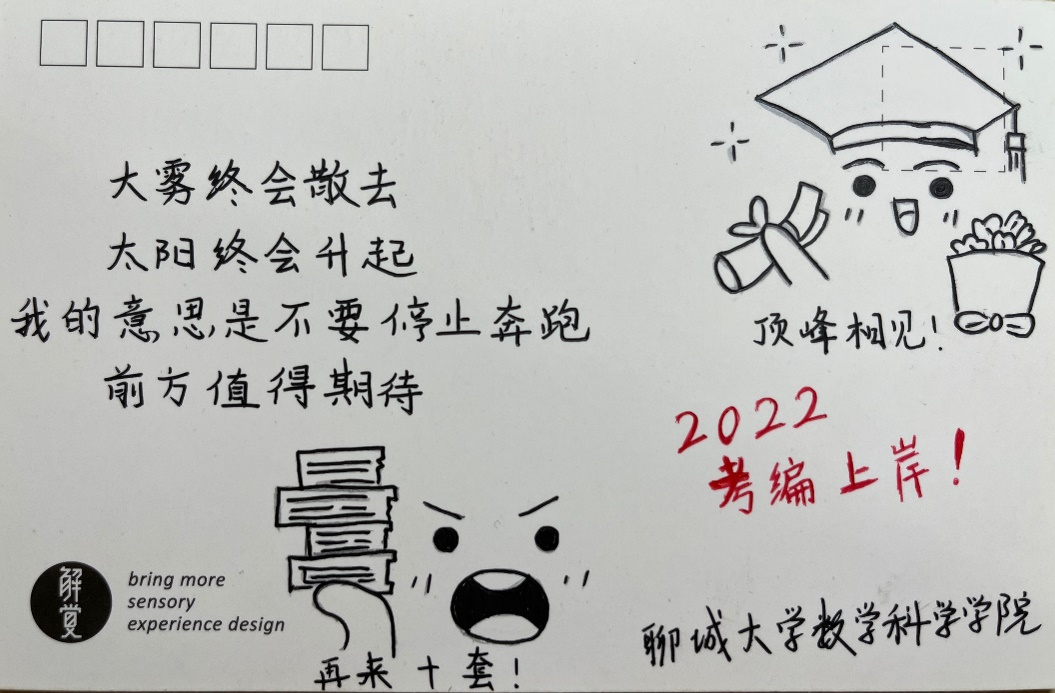 大雾终会散去
太阳终会升起
我的意思是不要停止奔跑
前方值得期待
顶峰相见！
2022
考编上岸！
再来十套！
解觉
bring more
sensory
experience design
聊城大学数学科学学院